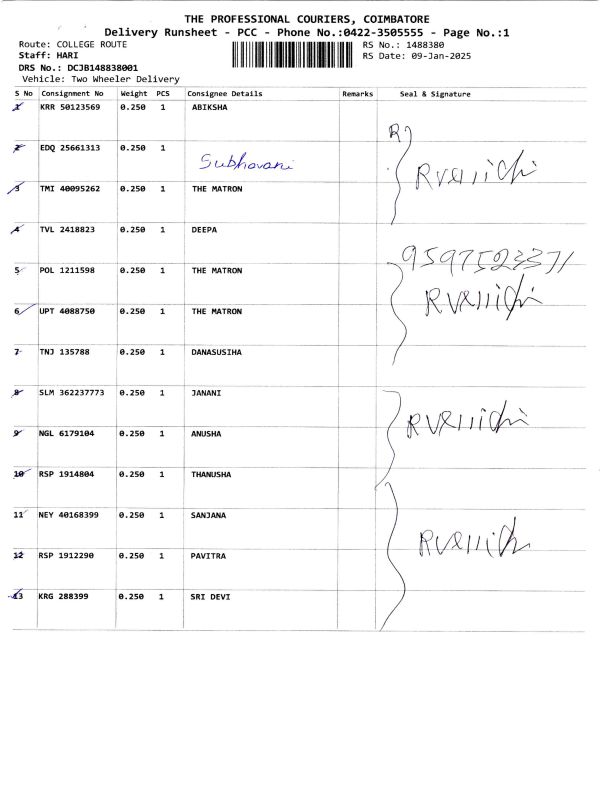 THE PROFESSIONAL COURIERS, COIMBATORE
Delivery Runsheet - PCC - Phone No.:0422-3505555 - Page No.:1
Route: COLLEGE ROUTE RS No.: 1488380
Staff: HARI RS Date: 09-Jan-2025
DRS No.: DCJB148838001
Vehicle: Two Wheeler Delivery
S No Consignment No Weight PCS Consignee Details Remarks Seal & Signature
1 KRR 50123569 0.250 1 ABIKSHA
2 EDQ 25661313 0.250 1
Subhavani
3 TMI 40095262 0.250 1 THE MATRON
4 TVL 2418823 0.250 1 DEEPA
9597523371
5 POL 1211598 0.250 1 THE MATRON
6 UPT 4088750 0.250 1 THE MATRON
7 TNJ 135788 0.250 1 DANASUSIHA
8 SLM 362237773 0.250 1 JANANI
9 NGL 6179104 0.250 1 ANUSHA
10 RSP 1914804 0.250 1 THANUSHA
11 NEY 40168399 0.250 1 SANJANA
12 RSP 1912290 0.250 1 PAVITRA
13 KRG 288399 0.250 1 SRI DEVI